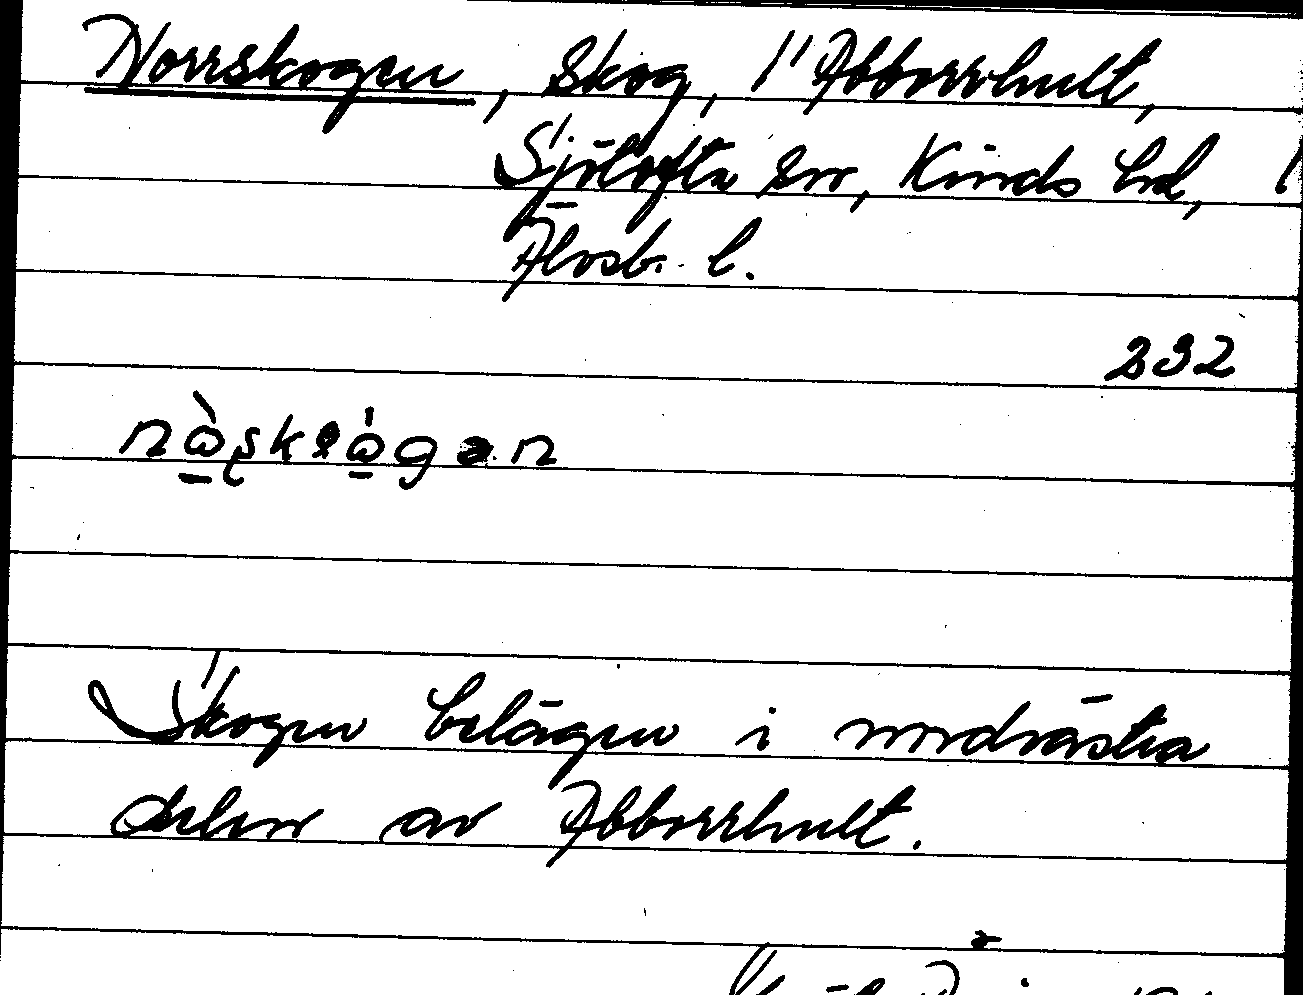 Norrskogen, skog, 1" Abborrhult,
Sjötofta sn, Kinds hd,
Älvsb. l.
232
Skogen belägen i nordvästra
delen av Abborrhult.